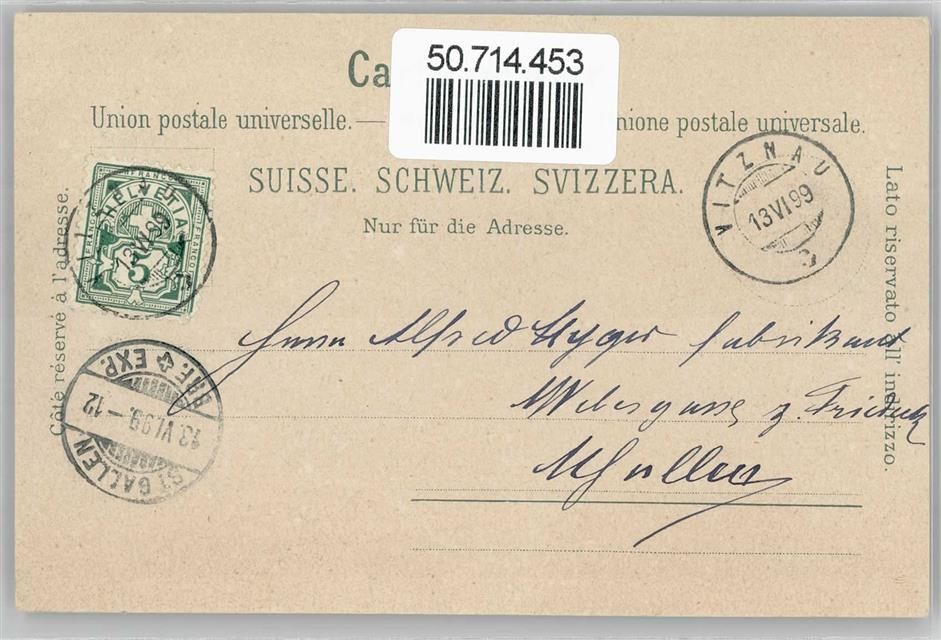 50.714.453
Ca
Union postale universelle. — nione postale universale.
SUISSE. SCHWEIZ. SVIZZERA.
Nur für die Adresse.
Côté réservé à l'adresse.
Lato riservato all' indirizzo.
FRANCO
HELVETIA
FRANCO
FRANCO
5
13 VI 99
VITZNAU
13 VI 99
BRF. EXP.
13. VI. 99. – 12
ST GALLEN
Herrn Alfred fabrikant
Webergasse z.
St Gallen